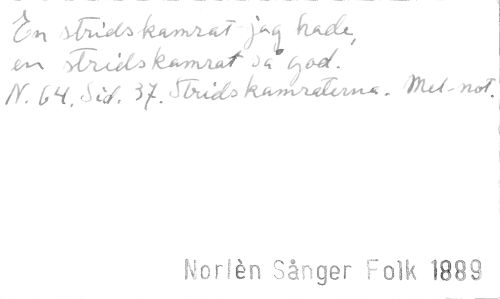 En stridskamrat jag hade,
en stridskamrat så god.
N. 64. Sid. 37. Stridskamraterna. Mel-not.
Norlèn Sånger Folk 1889